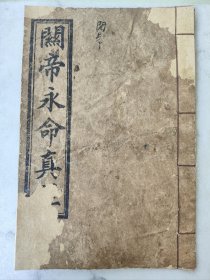 關帝永命真